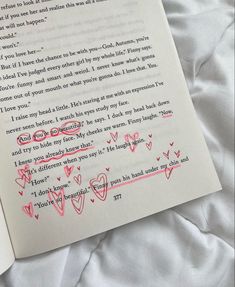 refuse to look at
if you see her and realize this was all a
that will not happen."
could."
won't."
if you love her—"
But if I have the chance to be with you—God, Autumn, you're
ideal I've judged every other girl by my whole life," Finny says.
You're funny and smart and weird. I never know what's gonna
come out of your mouth or what you're gonna do. I love that. You.
I love you."
I raise my head a little. He's staring at me with an expression I've
never seen before. I watch his eyes study my face.
"And you're so beautiful," he says. I duck my head back down
and try to hide my face. My cheeks are warm. Finny laughs. "Now
I know you already knew that."
"It's different when you say it." He laughs again.
"How?"
"I don't know."
"You're so beautiful." Finny puts his hand under my chin and
377